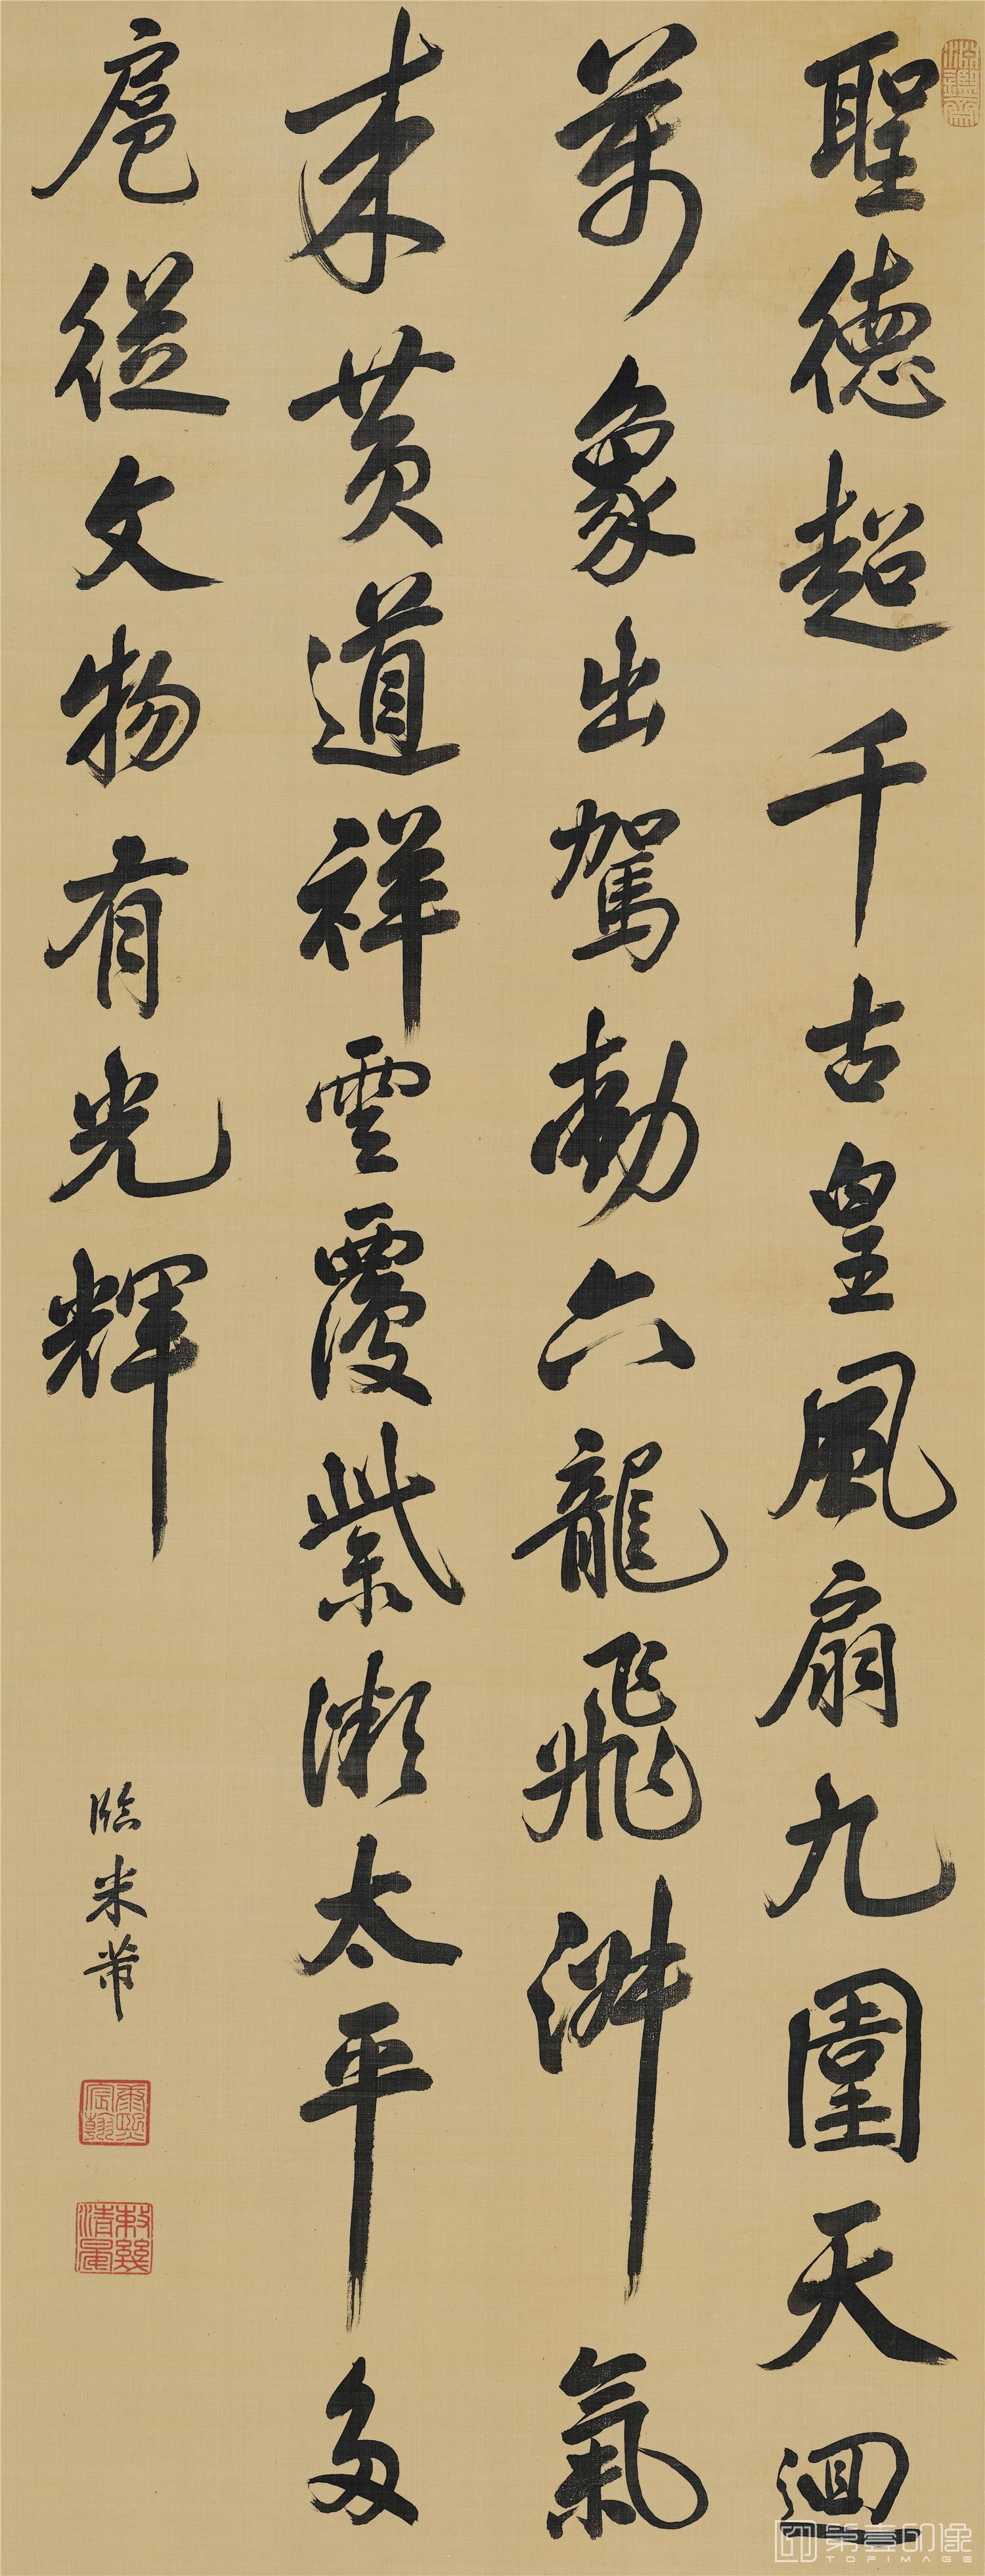 聖德超千古皇風扇九圍天迴
萬象出駕動六龍飛淑氣
来黄道祥雲覆紫微太平多
扈從文物有光輝
臨米芾
淵鑒齋
康熙宸翰
敕幾清晏
第壹印像
TOPIMAGE